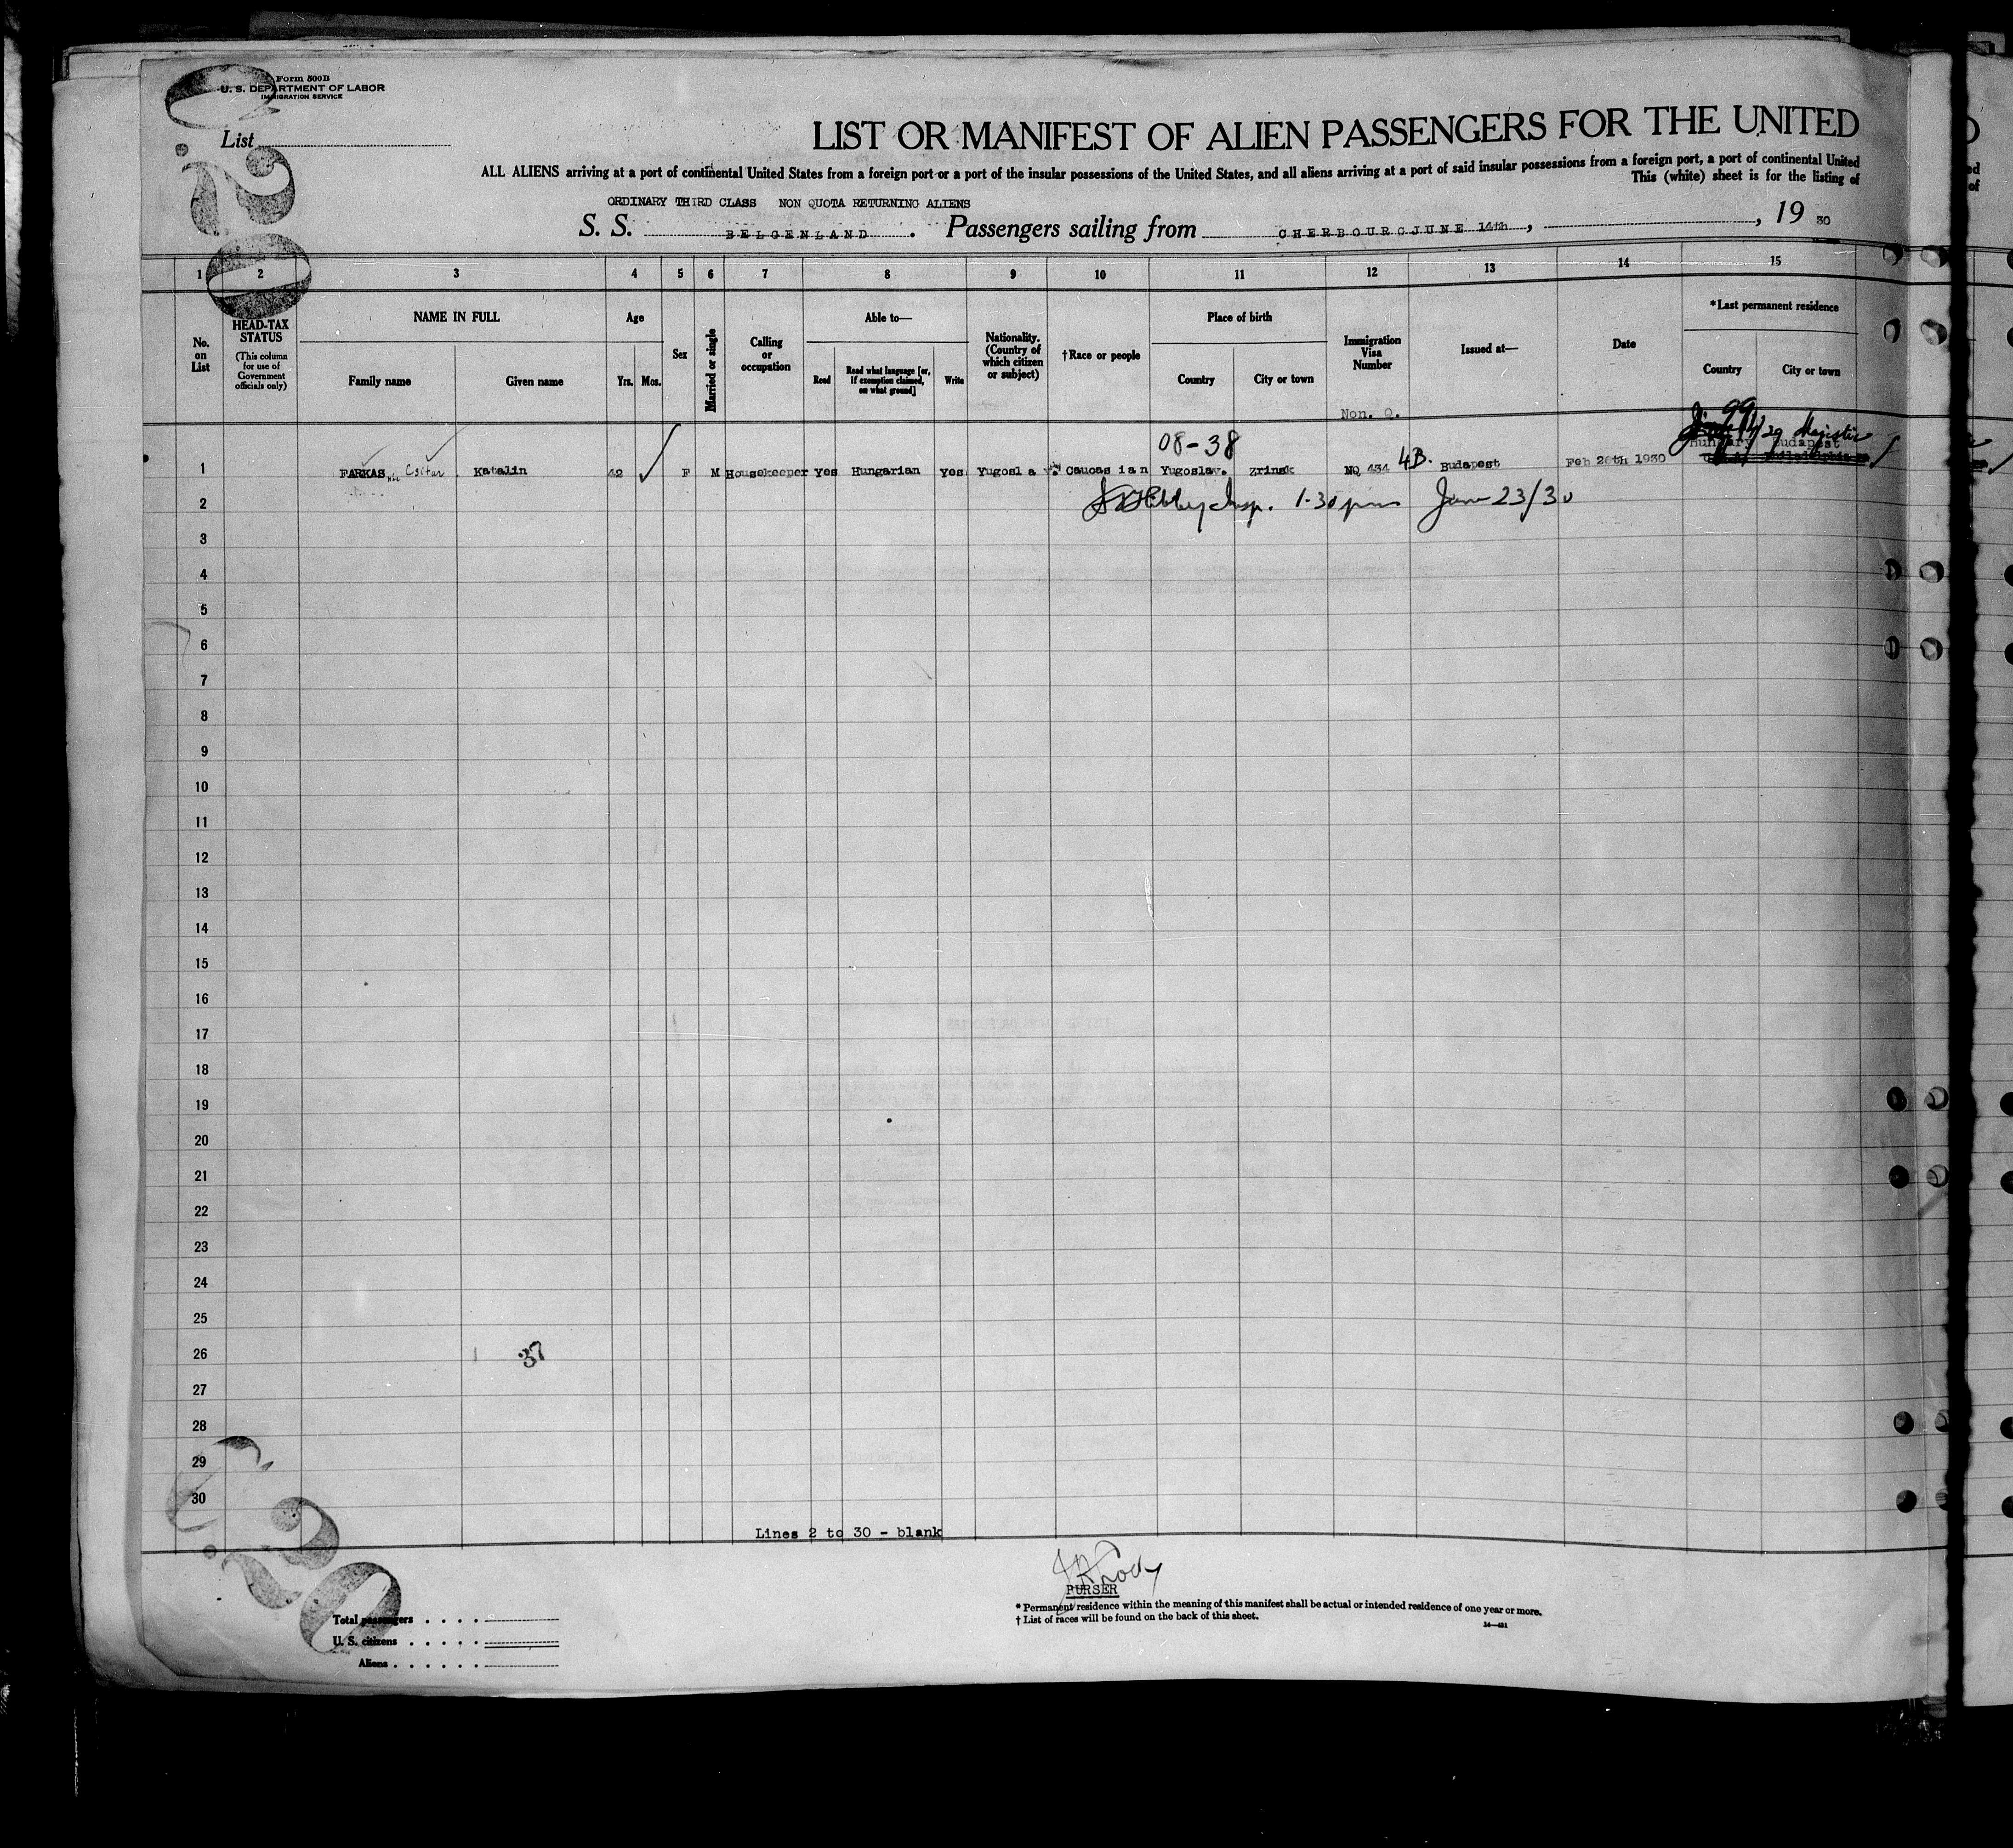 Form 500B
U. S. DEPARTMENT OF LABOR
IMMIGRATION SERVICE
List
LIST OR MANIFEST OF ALIEN PASSENGERS FOR THE UNITED
ALL ALIENS arriving at a port of continental United States from a foreign port or a port of the insular possessions of the United States, and all aliens arriving at a port of said insular possessions from a foreign port, a port of continental United
This (white) sheet is for the listing of
ORDINARY THIRD CLASS NON QUOTA RETURNING ALIENS
S. S. BELGENLAND . Passengers sailing from CHERBOURG JUNE 14th , , 19 30
1 2 3 4 5 6 7 8 9 10 11 12 13 14 15
No. on List
HEAD-TAX STATUS
(This column for use of Government officials only)
NAME IN FULL
Family name
Given name
Age
Yrs. Mos.
Sex
Married or single
Calling or occupation
Able to—
Read
Read what language [or, if exemption claimed, on what ground]
Write
Nationality. (Country of which citizen or subject)
†Race or people
Place of birth
Country
City or town
Immigration Visa Number
Issued at—
Date
*Last permanent residence
Country
City or town
Non. Q.
99
29 Majestic
08-38
Hungary Budapest
1 FARKAS Csitar Katalin 42 F M Housekeeper Yes Hungarian Yes Yugosla Caucasian Yugoslav. Zrinsk NQ 434 4B. Budapest Feb 20th 1930
2 Insp. 1-30 pm June 23/30
3
4
5
6
7
8
9
10
11
12
13
14
15
16
17
18
19
20
21
22
23
24
25
26 37
27
28
29
30
Lines 2 to 30 - blank
PURSER
* Permanent residence within the meaning of this manifest shall be actual or intended residence of one year or more.
† List of races will be found on the back of this sheet.
Total passengers . . . .
U. S. citizens . . . . .
Aliens . . . . . .